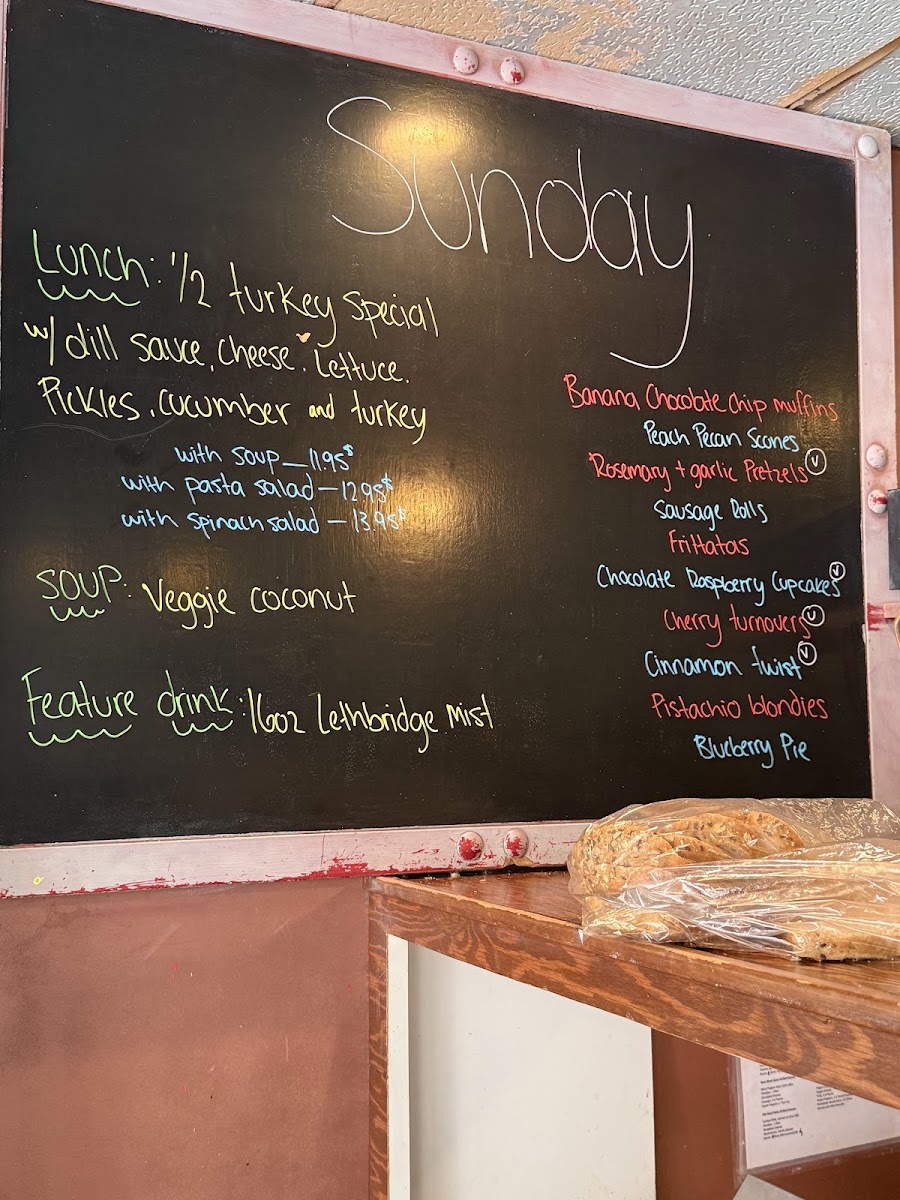 Sunday
Lunch: 1/2 turkey special
w/ dill sauce, cheese, Lettuce,
Pickles, cucumber and turkey
with soup — 11.95$
with pasta salad — 12.95$
with spinach salad — 13.95$
SOUP: Veggie coconut
Feature drink: 16oz Lethbridge Mist
Banana Chocolate Chip muffins
Peach Pecan Scones
Rosemary + garlic Pretzels Ⓥ
Sausage Rolls
Frittatas
Chocolate Raspberry Cupcakes Ⓥ
Cherry turnovers Ⓥ
Cinnamon twist Ⓥ
Pistachio blondies
Blueberry Pie